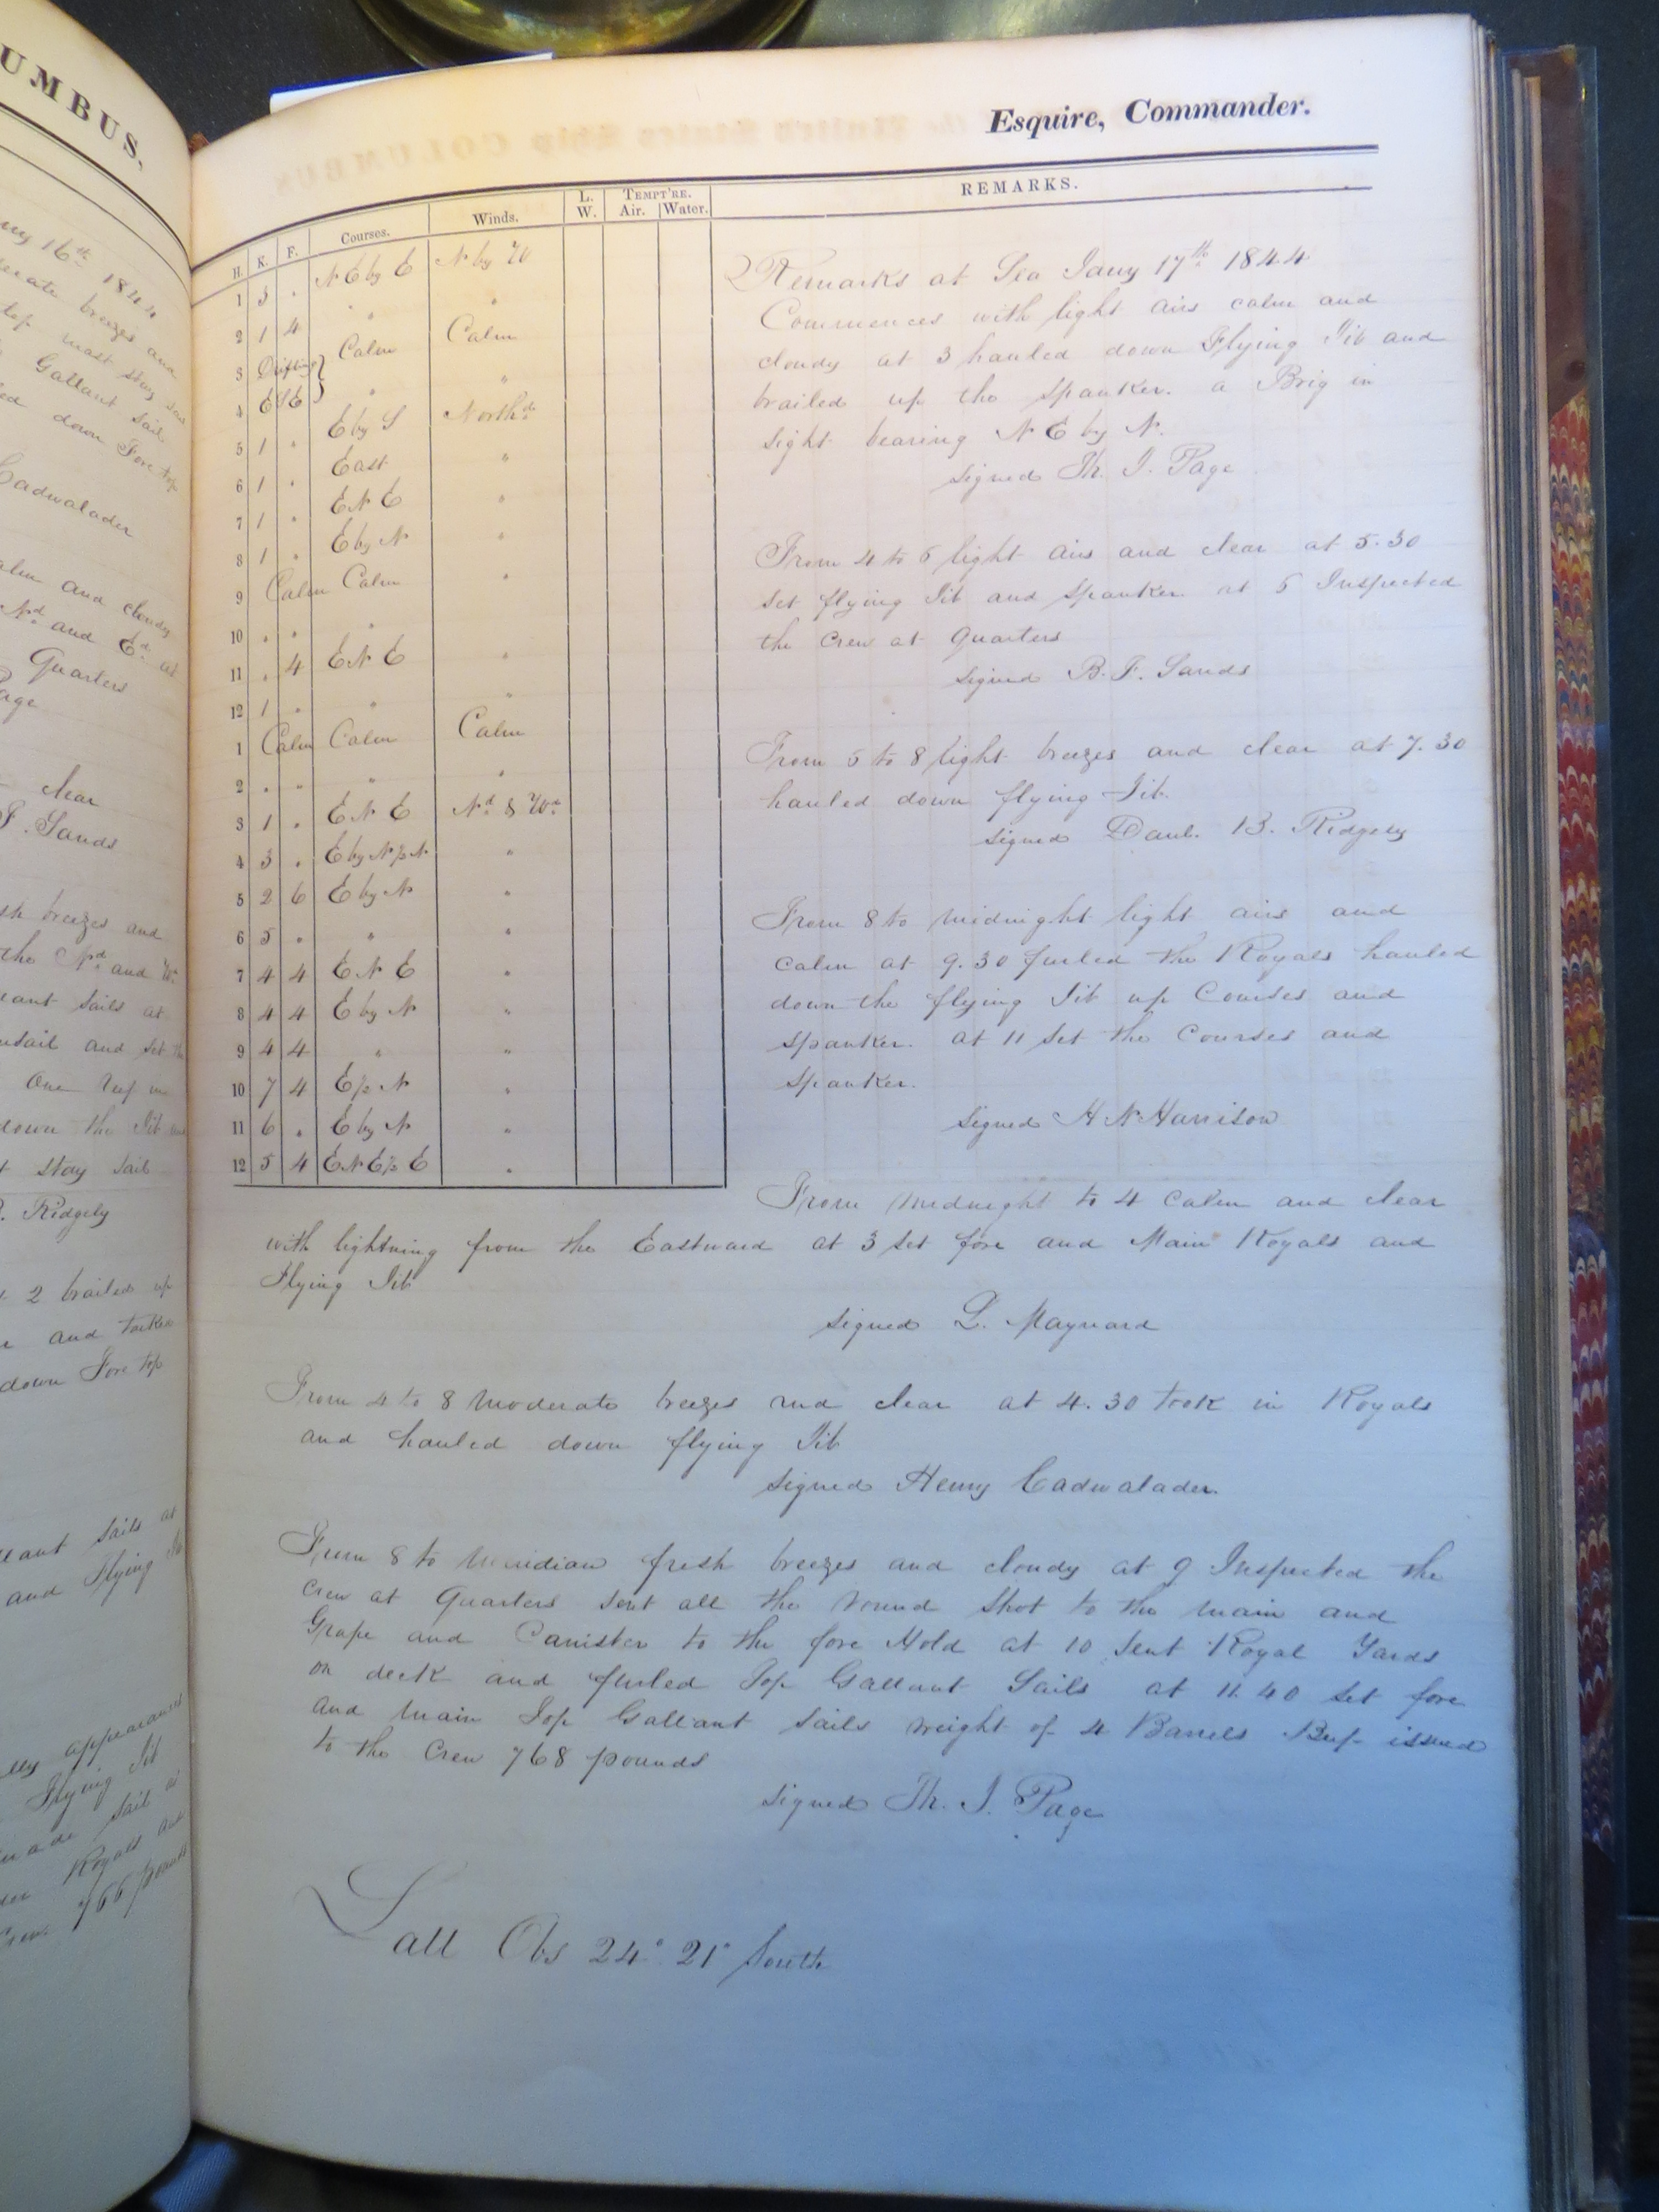 UMBUS.
16th 1844
breezes and
Gallant Sail.
down Fore top
Cadwalader
and cloudy
Nd and Ed at
Quarters
Page
clear
Sands
breezes and
the Nd and Wd
sails at
and set the
One reef in
down the Jib
stay sail
Ridgely
2 brailed up
and tacked
down Fore top
sails at
and Flying
appearances
Flying Jib
made sail
Royals and
766 pounds
Esquire, Commander.
H. K. F. Courses. Winds. L. W. TEMPT'RE. Air. Water. REMARKS.
1 3 . N E by E N by W
2 1 4 " "
3 Drifting Calm Calm
4 E S E " "
5 1 . E by S Northd
6 1 . East "
7 1 . E N E "
8 1 . E by N "
9 Calm Calm "
10 . . " "
11 . 4 E N E "
12 1 . " "
1 Calm Calm Calm
2 . . " "
3 1 . E N E Nd & Wd
4 3 . E by N ½ N "
5 2 6 E by N "
6 5 . " "
7 4 4 E N E "
8 4 4 E by N "
9 4 4 " "
10 7 4 E ½ N "
11 6 . E by N "
12 5 4 E N E ½ E "
Remarks at Sea Jany 17th 1844
Commences with light airs calm and
cloudy at 3 hauled down Flying Jib and
brailed up the Spanker. a Brig in
sight bearing N E by N.
signed Th. J. Page
From 4 to 6 light airs and clear at 5.30
set flying Jib and Spanker at 6 Inspected
the Crew at Quarters
signed B. F. Sands
From 6 to 8 light breezes and clear at 7.30
hauled down flying Jib.
signed Danl. B. Ridgely
From 8 to midnight light airs and
calm at 9.30 furled the Royals hauled
down the flying Jib up Courses and
Spanker. at 11 set the Courses and
Spanker.
signed H N Harrison
From Midnight to 4 Calm and clear
with lightning from the Eastward at 3 set fore and Main Royals and
Flying Jib
signed L. Maynard
From 4 to 8 Moderate breezes and clear at 4.30 took in Royals
and hauled down flying Jib
signed Henry Cadwalader.
From 8 to Meridian fresh breezes and cloudy at 9 Inspected the
Crew at Quarters sent all the round Shot to the main and
Grape and Canister to the fore Hold at 10 sent Royal Yards
on deck and furled Top Gallant Sails at 11.40 set fore
and Main Top Gallant sails weight of 4 Barrels Beef issued
to the Crew 768 pounds
signed Th. J. Page
Latt Obs 24° 21' South